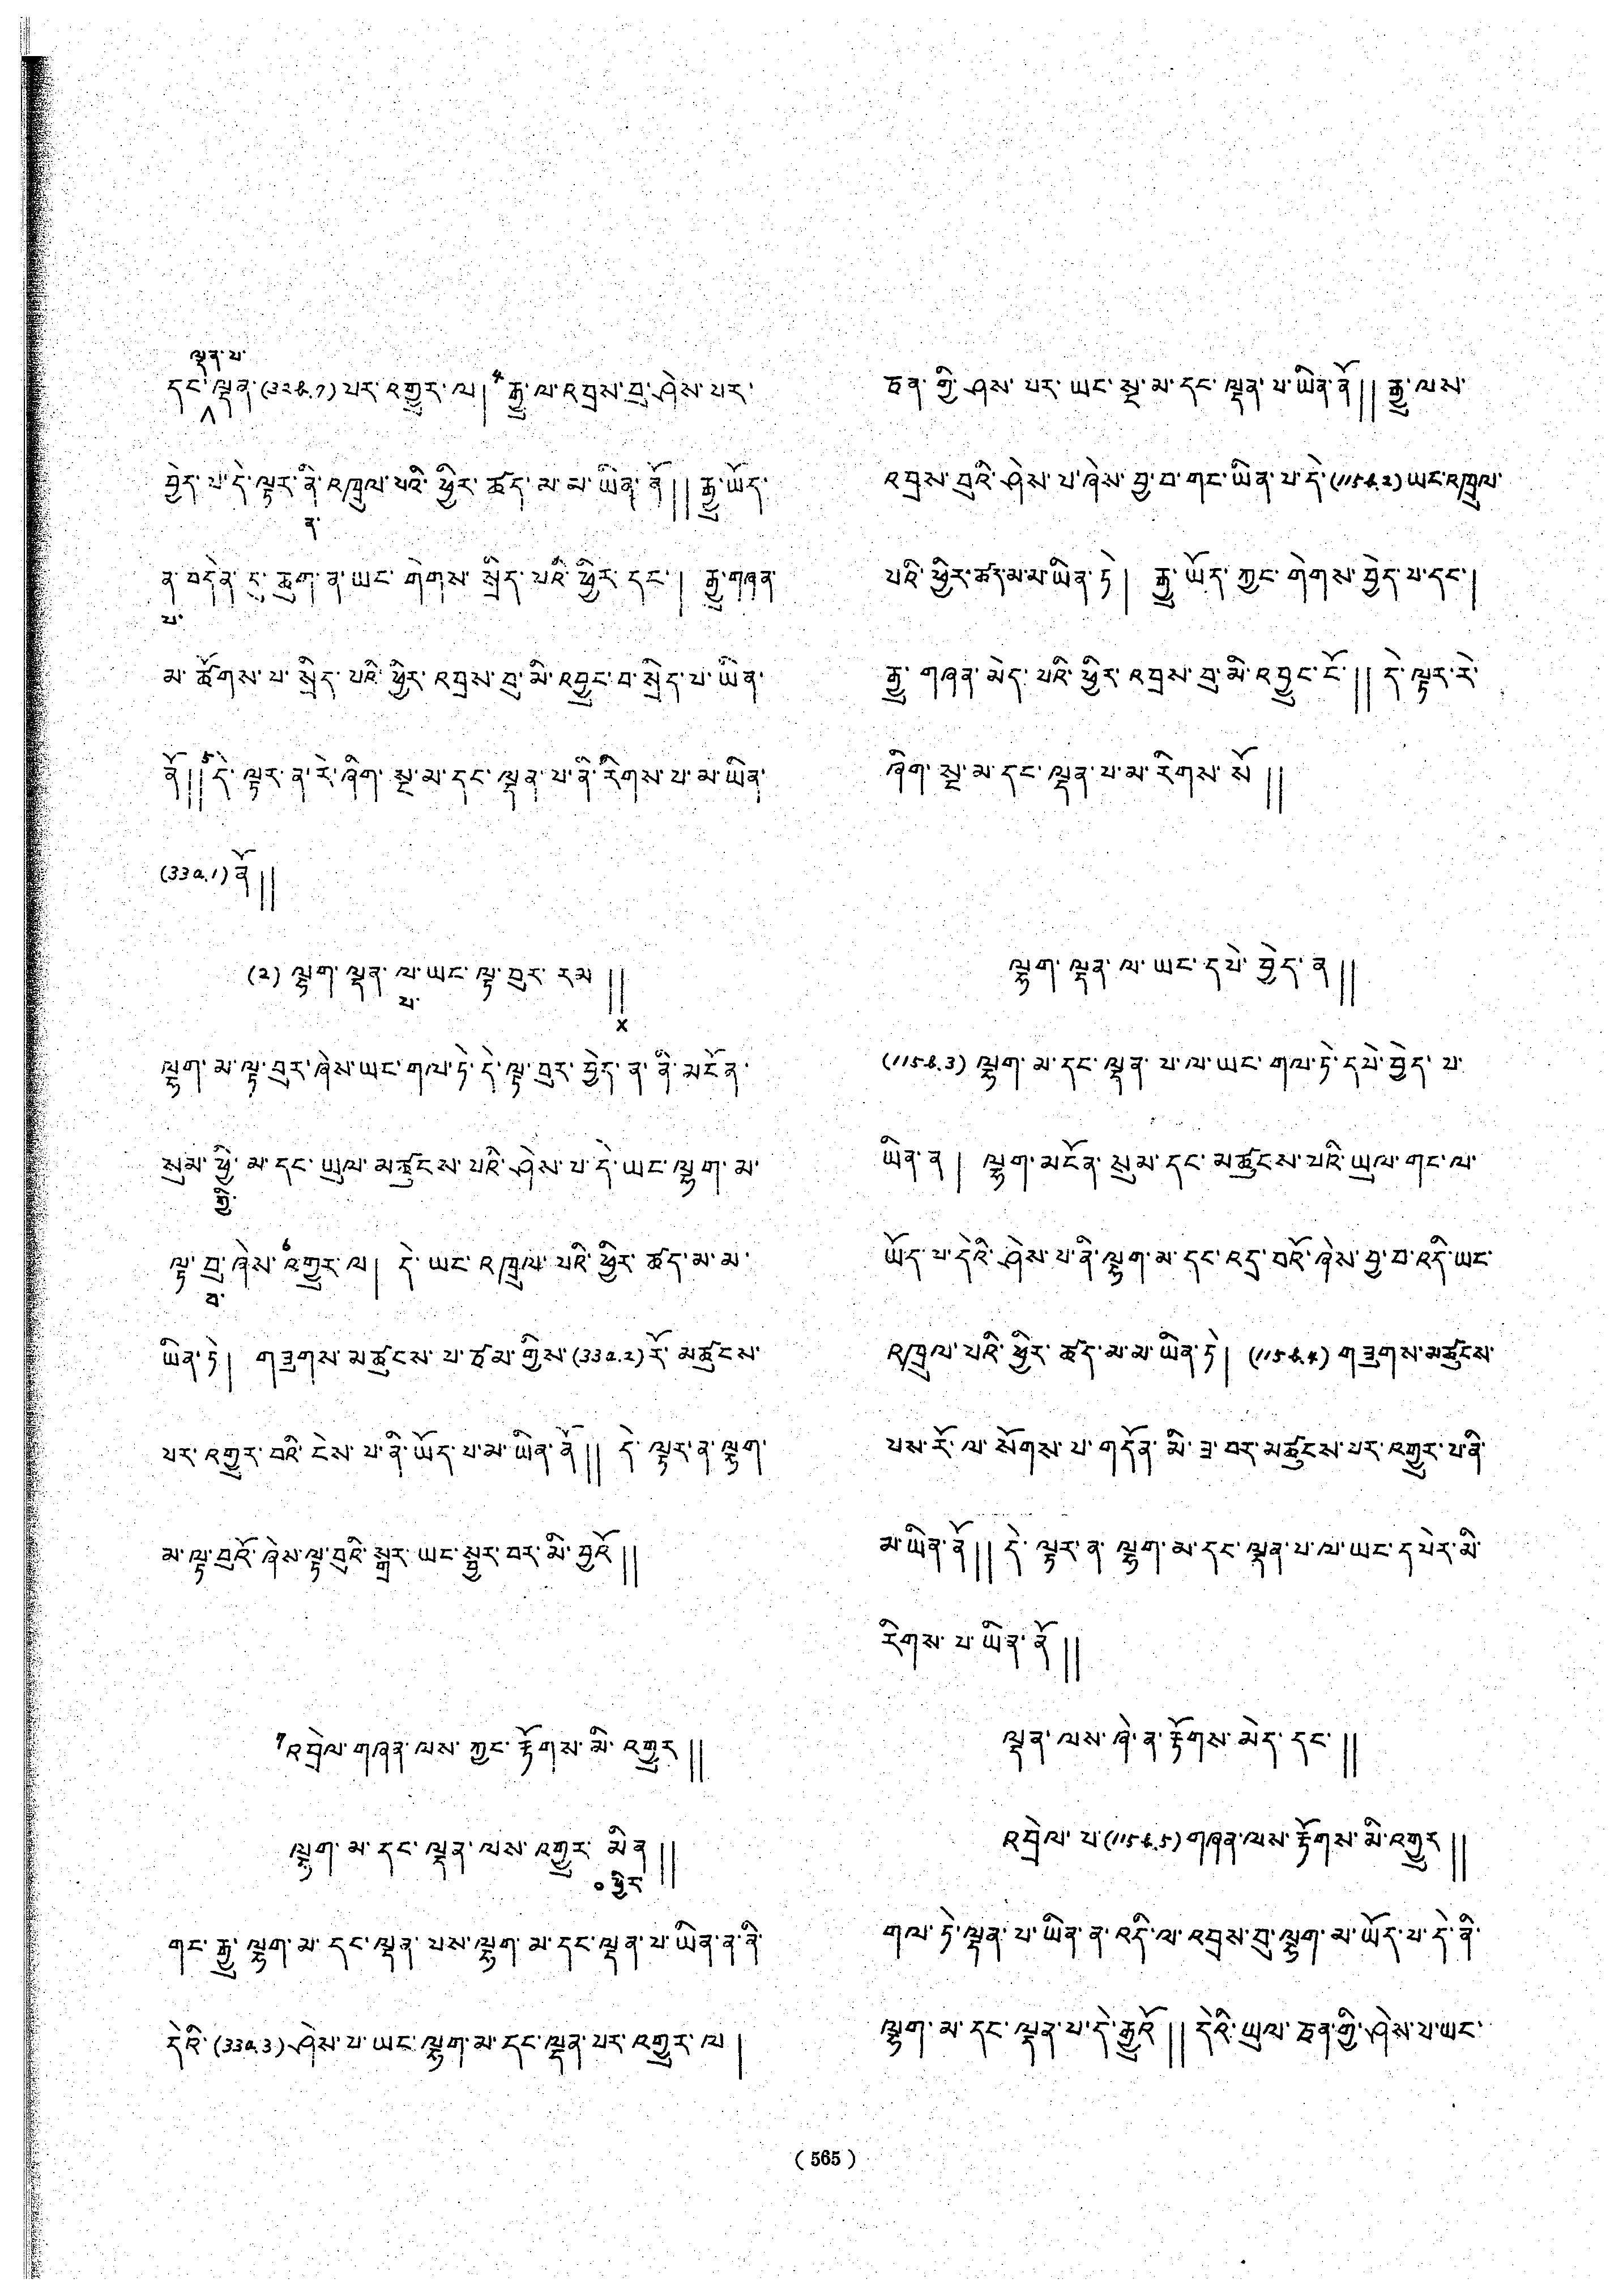 ལྡན་པ་
དང་ལྡན་(32b.7)པར་འགྱུར་ལ།⁴ རྒྱུ་ལ་འབྲས་བུ་ཤེས་པར་
བྱེད་པ་དེ་ལྟར་ནི་འཁྲུལ་པའི་ཕྱིར་ཚད་མ་མ་ཡིན་ནོ།། རྒྱུ་ཡོད་
ན་
ན་བདེན་དུ་ཆུག་ན་ཡང་གེགས་སྲིད་པའི་ཕྱིར་དང་། རྒྱུ་གཞན་
པ་
མ་ཚོགས་པ་སྲིད་པའི་ཕྱིར་འབྲས་བུ་མི་འབྱུང་བ་སྲིད་པ་ཡིན་
ནོ།།⁵ དེ་ལྟར་ན་རེ་ཞིག་སྔ་མ་དང་ལྡན་པ་ནི་རིགས་པ་མ་ཡིན་
(33a.1)ནོ།།
(2) ལྷག་ལྡན་ལ་ཡང་ལྟ་བུར་རམ།།
པ་
×
ལྷག་མ་ལྟ་བུར་ཞེས་ཡང་གལ་ཏེ་དེ་ལྟ་བུར་བྱེད་ན་ནི་མངོན་
སུམ་ཕྱི་མ་དང་ཡུལ་མཚུངས་པའི་ཤེས་པ་དེ་ཡང་ལྷག་མ་
གྱི་
ལྟ་བུ་ཞེས་⁶འགྱུར་ལ། དེ་ཡང་འཁྲུལ་པའི་ཕྱིར་ཚད་མ་མ་
བ་
ཡིན་ཏེ། གཟུགས་མཚུངས་པ་ཙམ་གྱིས་(33a.2)རོ་མཚུངས་
པར་འགྱུར་བའི་ངེས་པ་ནི་ཡོད་པ་མ་ཡིན་ནོ།། དེ་ལྟར་ན་ལྷག་
མ་ལྟ་བུའོ་ཞེས་ལྟ་བུའི་སྒྲར་ཡང་སྦྱར་བར་མི་བྱའོ།།
⁷འབྲེལ་གཞན་ལས་ཀྱང་རྟོགས་མི་འགྱུར།།
ལྷག་མ་དང་ལྡན་ལས་འགྱུར་མིན།།
॰ཕྱིར་
གང་རྒྱུ་ལྷག་མ་དང་ལྡན་པས་ལྷག་མ་དང་ལྡན་པ་ཡིན་ན་ནི་
དེའི་(33a.3)ཤེས་པ་ཡང་ལྷག་མ་དང་ལྡན་པར་འགྱུར་ལ།
ཅན་གྱི་ཤས་པར་ཡང་སྔ་མ་དང་ལྡན་པ་ཡིན་ནོ།། རྒྱུ་ལས་
འབྲས་བུའི་ཤེས་པ་ཞེས་བྱ་བ་གང་ཡིན་པ་དེ་(115b.2)ཡང་འཁྲུལ་
པའི་ཕྱིར་ཚད་མ་མ་ཡིན་ཏེ། རྒྱུ་ཡོད་ཀྱང་གེགས་བྱེད་པ་དང་།
རྒྱུ་གཞན་མེད་པའི་ཕྱིར་འབྲས་བུ་མི་འབྱུང་ངོ་།། དེ་ལྟར་རེ་
ཞིག་སྔ་མ་དང་ལྡན་པ་མ་རིགས་སོ།།
ལྷག་ལྡན་ལ་ཡང་དཔེ་བྱེད་ན།།
(115b.3) ལྷག་མ་དང་ལྡན་པ་ལ་ཡང་གལ་ཏེ་དཔེ་བྱེད་པ་
ཡིན་ན། ལྷག་མངོན་སུམ་དང་མཚུངས་པའི་ཡུལ་གང་ལ་
ཡོད་པ་དེའི་ཤེས་པ་ནི་ལྷག་མ་དང་འདྲ་བའོ་ཞེས་བྱ་བ་འདི་ཡང་
འཁྲུལ་པའི་ཕྱིར་ཚད་མ་མ་ཡིན་ཏེ། (115b.4) གཟུགས་མཚུངས་
པས་རོ་ལ་སོགས་པ་གདོན་མི་ཟ་བར་མཚུངས་པར་འགྱུར་པ་ནི་
མ་ཡིན་ནོ།། དེ་ལྟར་ན་ལྷག་མ་དང་ལྡན་པ་ལ་ཡང་དཔེར་མི་
རིགས་པ་ཡིན་ནོ།།
ལྡན་ལས་ཞེ་ན་རྟོགས་མེད་དང་།།
འབྲེལ་པ་(115b.5)གཞན་ལས་རྟོགས་མི་འགྱུར།།
གལ་ཏེ་ལྡན་པ་ཡིན་ན་འདི་ལ་འབྲས་བུ་ལྷག་མ་ཡོད་པ་དེ་ནི་
ལྷག་མ་དང་ལྡན་པ་དེ་རྒྱུའོ།། དེའི་ཡུལ་ཅན་གྱི་ཤེས་པ་ཡང་
( 565 )